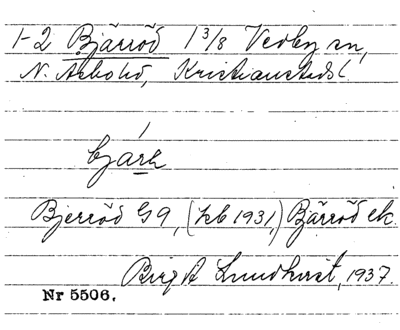 1-2 Bjärröd 1 3/8 Vedby sn,
N. Åsbo hd, Kristianstads l
bjärh
Bjerröd G9, (kb 1931,) Bjärröd ek.
Birgit Lundkvist, 1937.
Nr 5506.